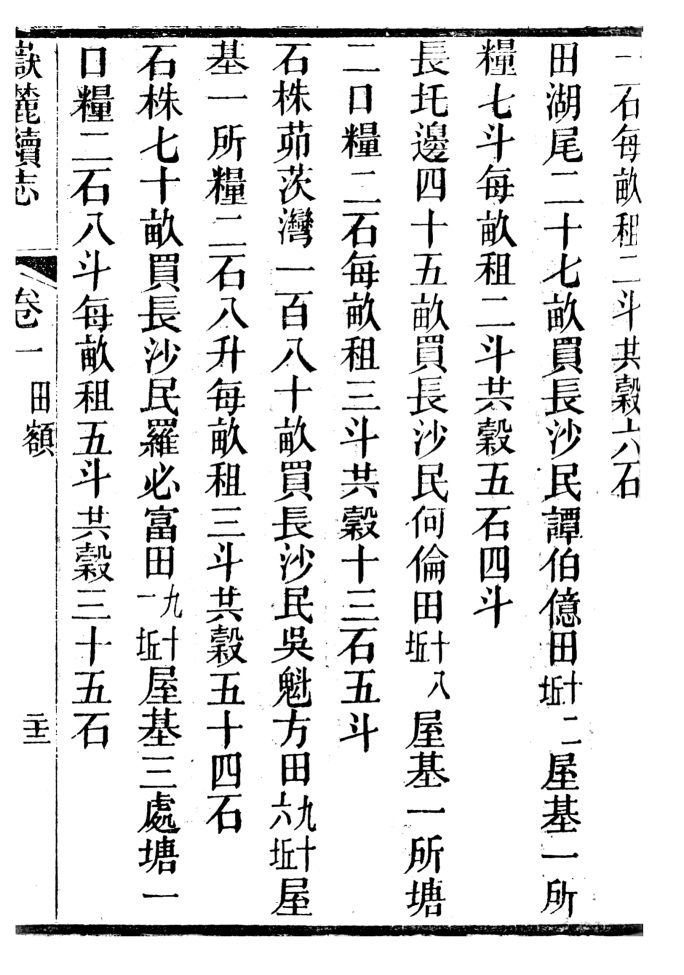 二石每畝租二斗共穀六石
田湖尾二十七畝買長沙民譚伯億田十二坵屋基一所
糧七斗每畝租二斗共穀五石四斗
長圫邊四十五畝買長沙民何倫田十八坵屋基一所塘
二口糧二石每畝租三斗共穀十三石五斗
石株茆茨灣一百八十畝買長沙民吳魁方田九十六坵屋
基一所糧二石八升每畝租三斗共穀五十四石
石株七十畝買長沙民羅必富田九十一坵屋基三處塘一
口糧二石八斗每畝租五斗共穀三十五石
嶽麓續志 卷一 田額 二十三